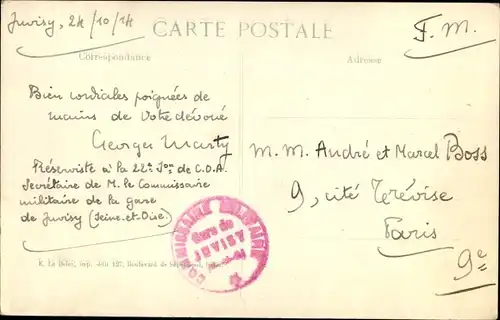 Juvisy, 24/10/14
CARTE POSTALE
F. M.
Correspondance
Adresse
Bien cordiales poignées de
mains de votre dévoué
Georges Marty
Réserviste à la 22e Son de C.O.A.
Secrétaire de M. le Commissaire
militaire de la gare
de Juvisy (Seine-et-Oise)
M. M. André et Marcel Boss
9, cité Trévise
Paris
9e
COMMISSAIRE MILITAIRE
Gare de
JUVISY
E. Le Deley, imp. édit. 127, Boulevard de Sébastopol, Paris